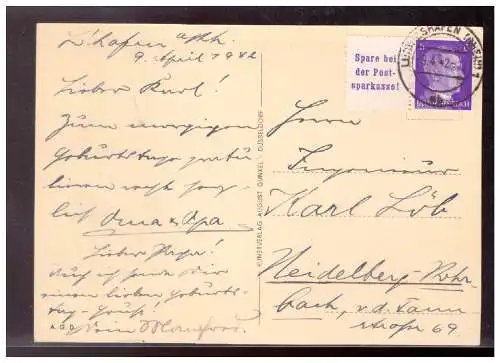 L'hafen a/Rh.
9. April 1942
Lieber Karl!
Zum morgigen
Geburtstage gratu
lieren recht herz-
lich Oma & Opa
Lieber Papa!
Auch ich sende Dir
einen lieben Geburts-
tags-Gruß!
Dein Manfred.
A G D
KUNSTVERLAG AUGUST GUNKEL · DÜSSELDORF
Spare bei
der Post-
sparkasse!
LUDWIGSHAFEN
Herrn
Ingenieur
Karl Löb
Heidelberg-Rohr-
bach, v. d. Tann
straße 69